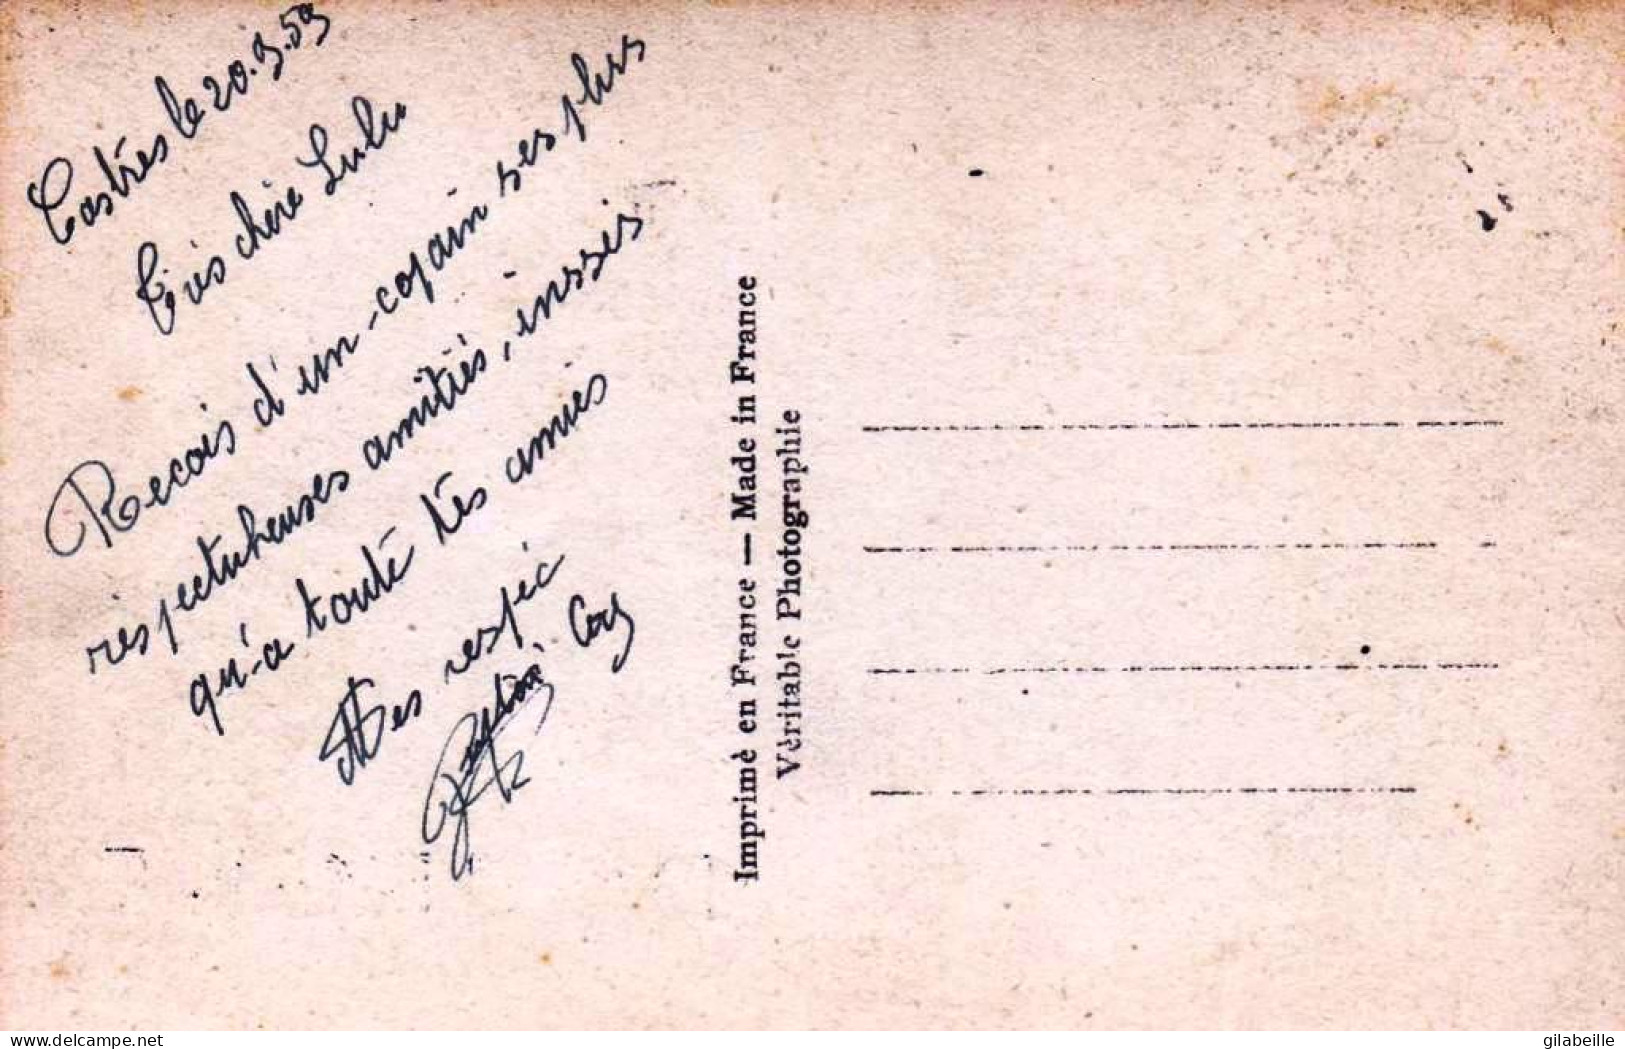 Castrés le 20.9.59
Très chère Lulu
Recois d'un-copain ses plus
réspectuheuses amitiés, inssis
qu'-a touté tés amies
Mes respéc
Imprimé en France — Made in France
Véritable Photographie
www.delcampe.net
gilabeille